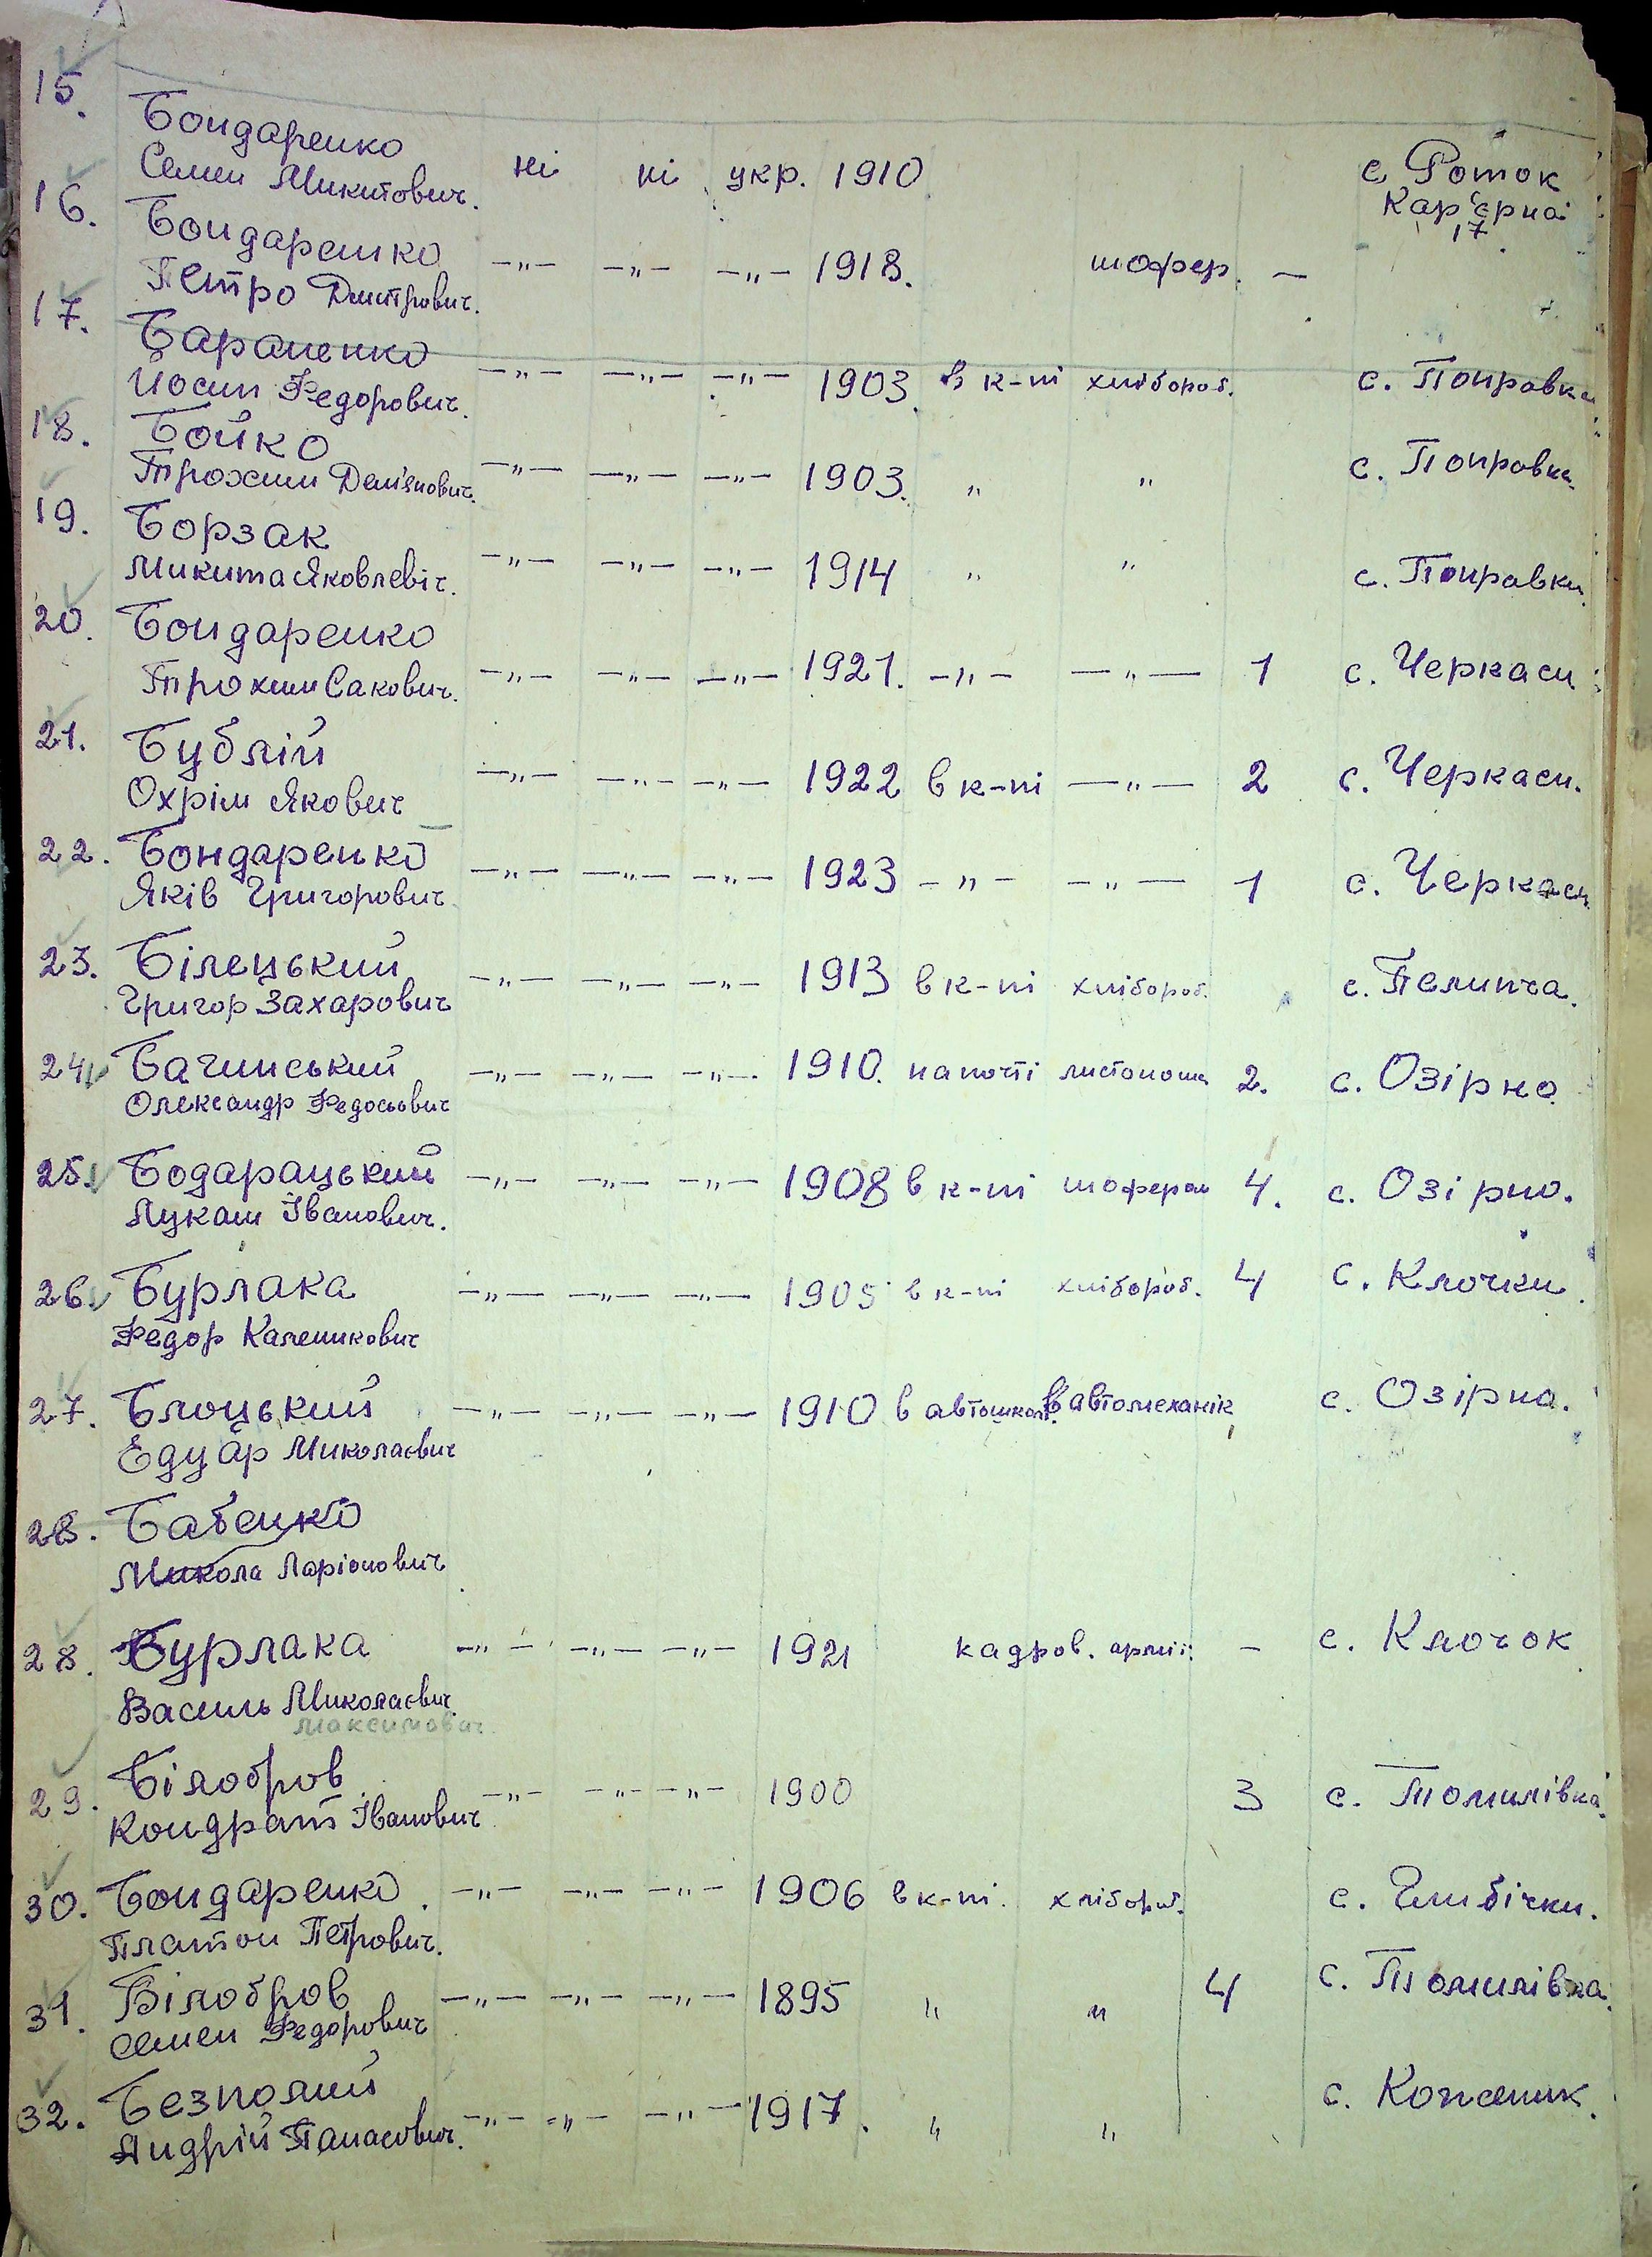 15. Бондаренко
Семен Микитович. ні ні укр. 1910 с. Роток
Кар'єрна
17.
16. Бондаренко
Петро Дмитрович. —„— —„— —„— 1918. шофер. —
17. Бараненко
Йосип Федорович. —„— —„— —„— 1903. в к-пі хлібороб. с. Поправка
18. Бойко
Трохим Дем'янович. —„— —„— —„— 1903. „ „ с. Поправка.
19. Борзак
Микита Яковлевіч. —„— —„— —„— 1914 „ „ с. Поправки.
20. Бондаренко
Трохим Сакович. —„— —„— —„— 1921. —„— —„— 1 с. Черкаси
21. Бублій
Охрім Якович —„— —„— —„— 1922 в к-пі —„— 2 с. Черкаси.
22. Бондаренко
Яків Григорович. —„— —„— —„— 1923 —„— —„— 1 с. Черкаси
23. Білецький
Григор Захарович —„— —„— —„— 1913 в к-пі хлібороб. с. Пелипча.
24. Бачинський —„— —„— —„— 1910. на почті листонош 2. с. Озірно
Олександр Федосьович
25. Бодарацький —„— —„— —„— 1908 в к-пі шофером 4. с. Озірно.
Лукаш Іванович.
26. Бурлака —„— —„— —„— 1905 в к-пі хлібороб. 4 с. Клочки.
Федор Каленикович
27. Блоцький —„— —„— —„— 1910 в автошколі автомеханік с. Озірна.
Едуар Миколаєвич
28. Бабенко
Микола Ларіонович
28. Бурлака —„— —„— —„— 1921 кадров. армії. — с. Клочок
Василь Миколаєвич
Максимович.
29. Білобров —„— —„— —„— 1900 3 с. Томилівка.
Кондрат Іванович
30. Бондаренко. —„— —„— —„— 1906 в к-пі. хлібороб. с. Глибічки.
Платон Петрович.
31. Білобров —„— —„— —„— 1895 „ „ 4 с. Томилівка.
Семен Федорович
32. Безполий
Андрій Панасович. —„— —„— —„— 1917. „ „ с. Кожаник.